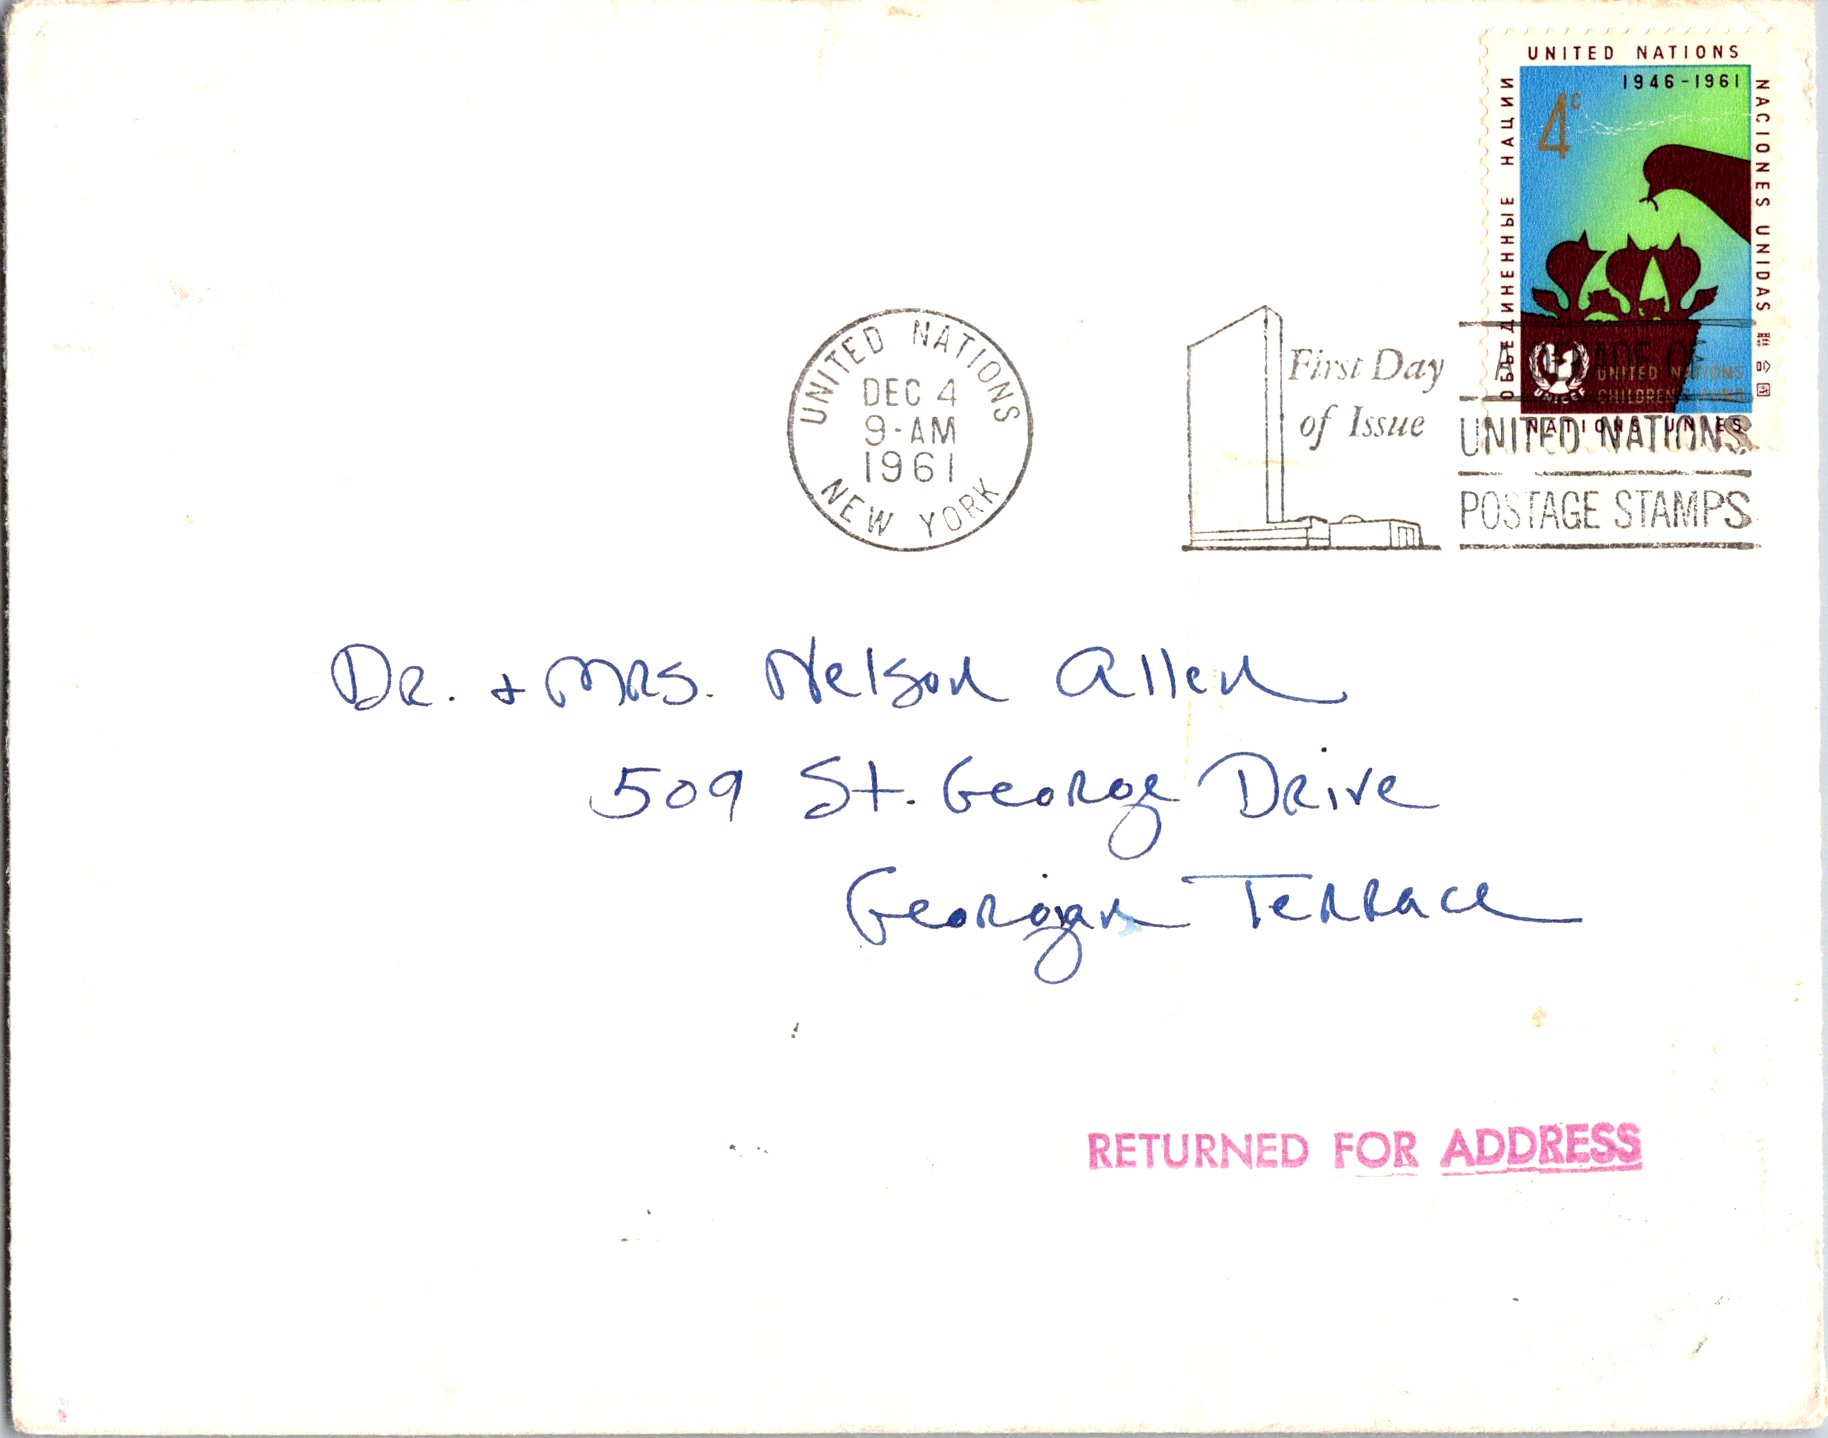 UNITED NATIONS
1946-1961
4c
ОБЪЕДИНЕННЫЕ НАЦИИ
NACIONES UNIDAS
UNICEF
UNITED NATIONS
CHILDREN'S FUND
NATIONS UNIES
UNITED NATIONS
DEC 4
9-AM
1961
NEW YORK
First Day
of Issue
A DECADE OF
UNITED NATIONS
POSTAGE STAMPS
Dr. + Mrs. Nelson Allen
509 St. George Drive
Georgian Terrace
RETURNED FOR ADDRESS